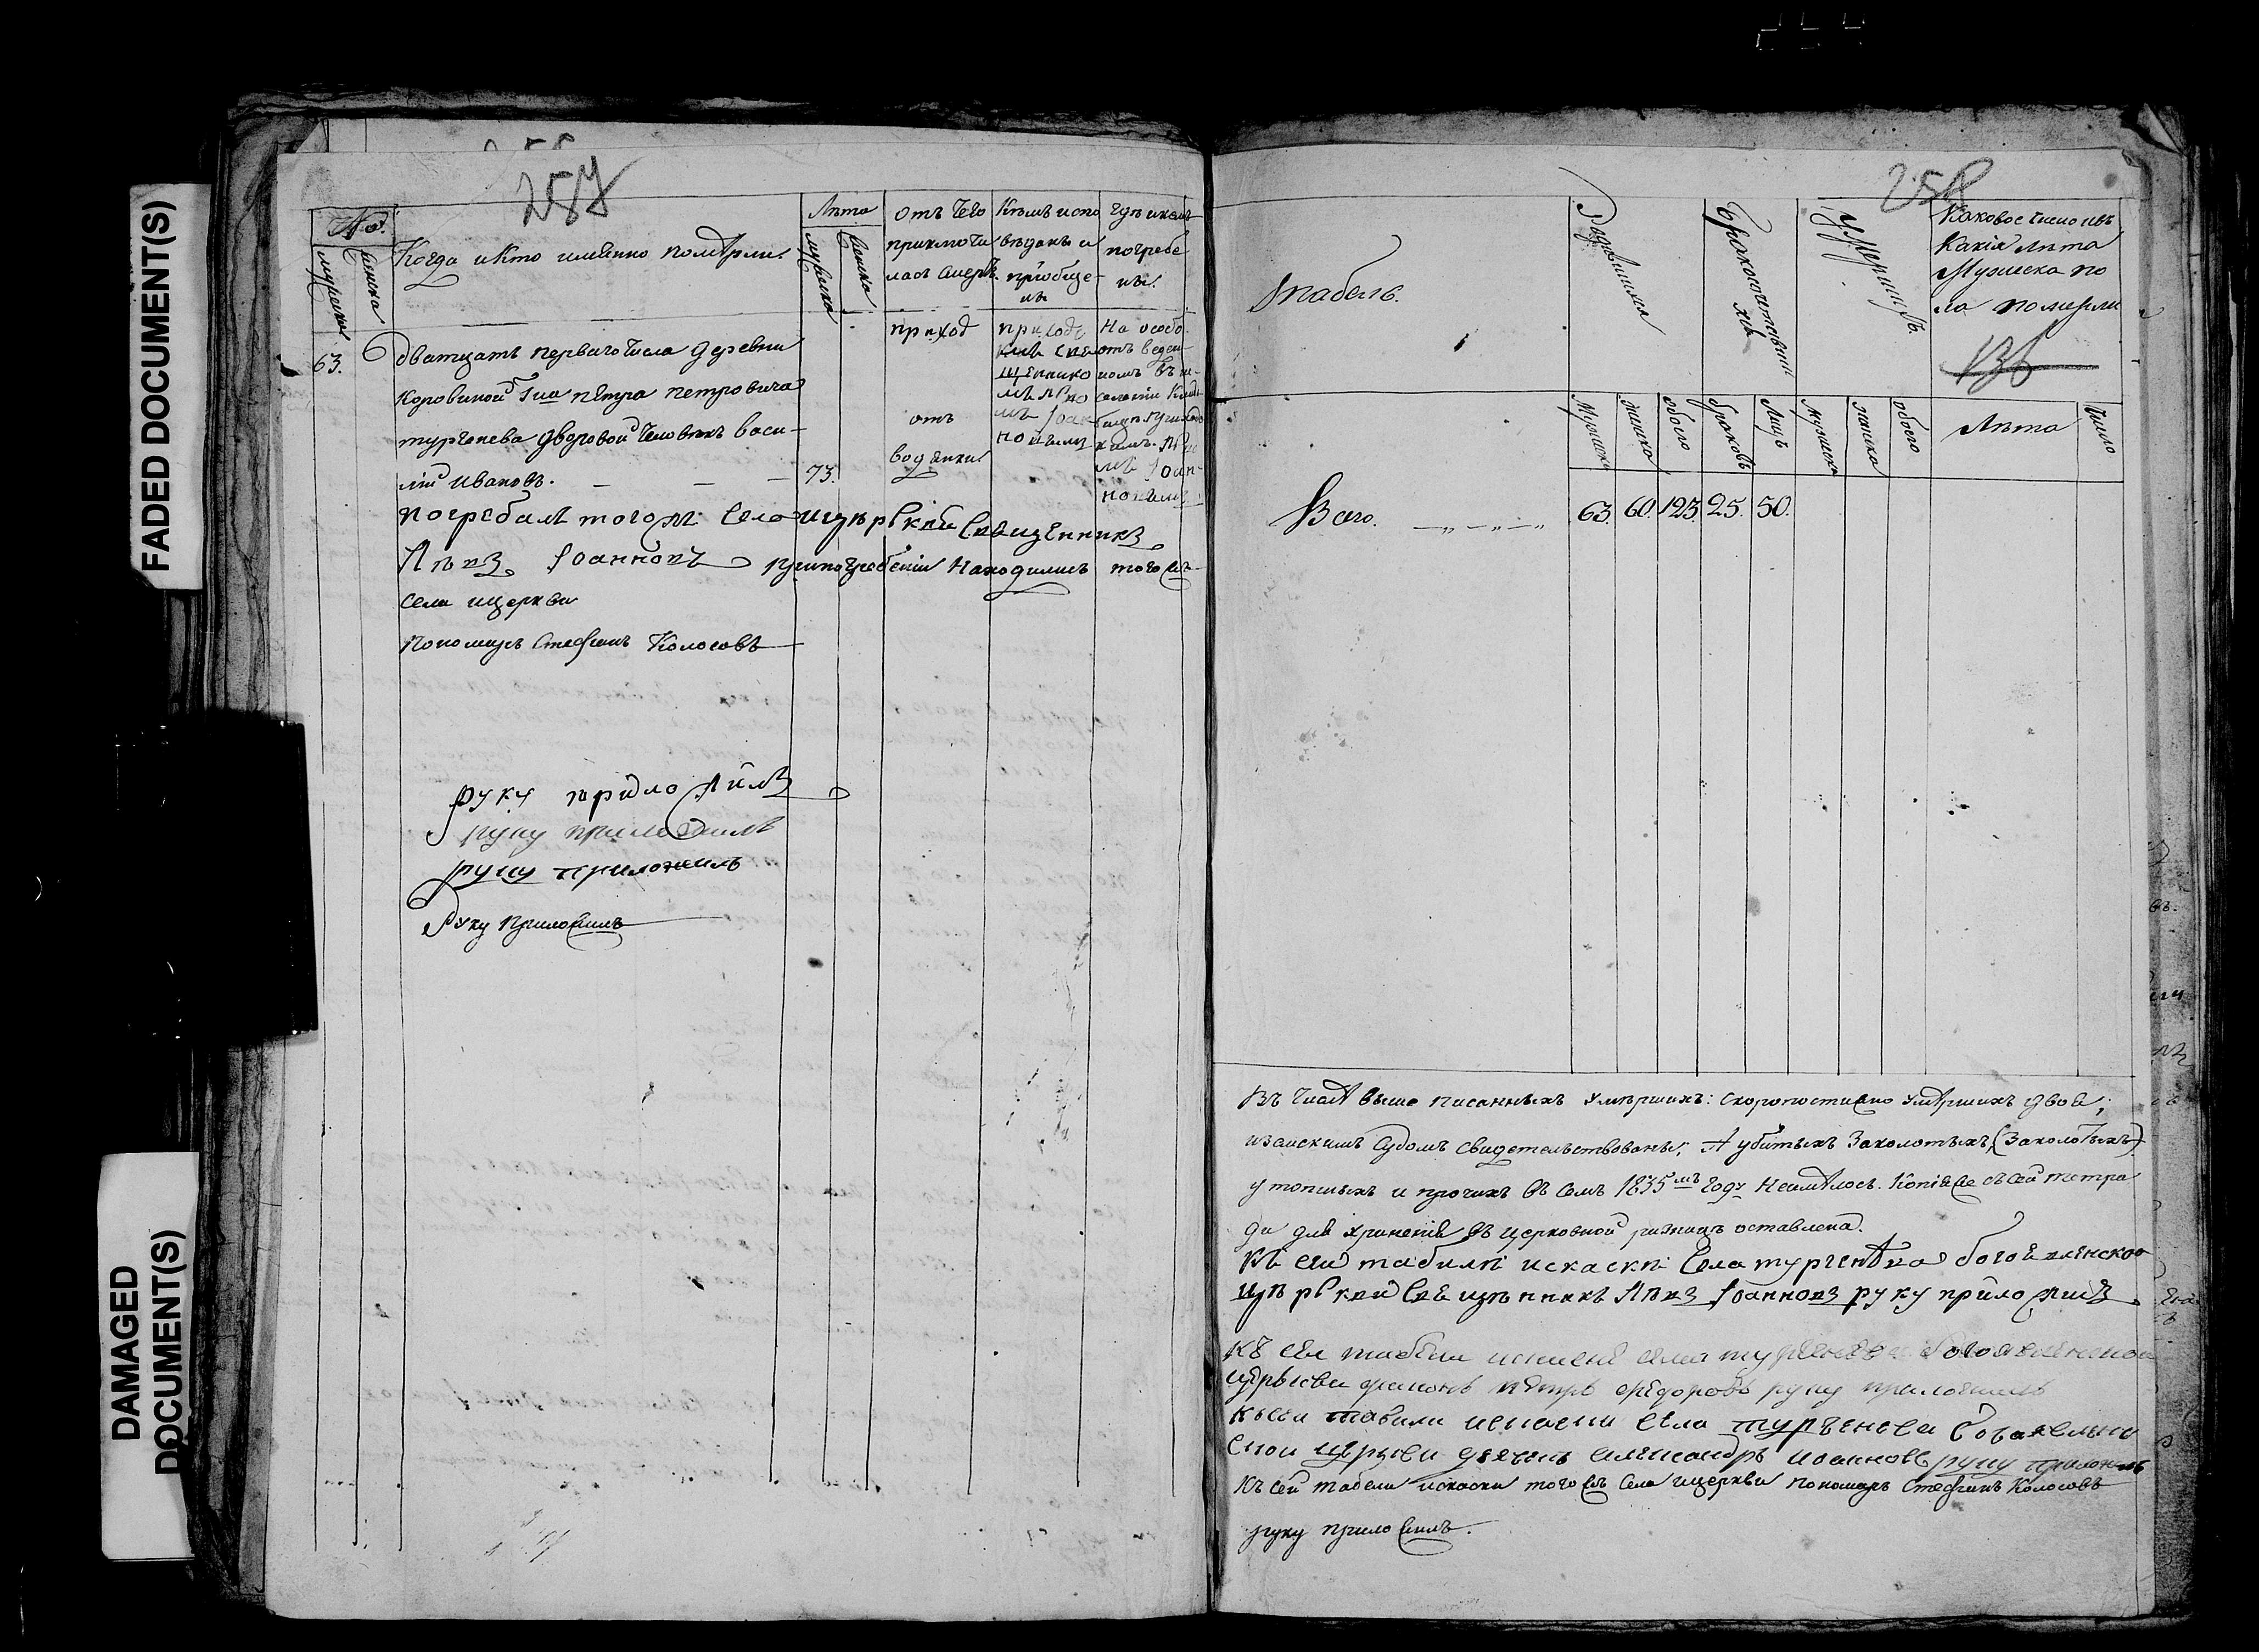 FADED DOCUMENT(S)
DAMAGED DOCUMENT(S)
257
№
мужеска
женска
Когда и кто именно померли.
Лѣта
мужеска
женска
отъ чего
приключи
лась смерть.
Кѣмъ испо
вѣданы и
пріобще-
ны
гдѣ и кемъ
погребе
ны.
63.
дватцать перваго числа деревни
Коровиной Гна Петра Петровича
тургенева дворовой человѣкъ васи-
лій Ивановъ. — — —
73.
приход
отъ
водянки
На особо
отъведен-
номъ
погребалъ тогожъ села церкви священникъ
Іоанновъ при погребеніи находились тогожъ
села церкви
Пономарь Стефанъ Колосовъ
руку приложилъ
руку приложилъ
руку приложилъ
Руку приложилъ
258
табель.
Родившихся
Бракосочетавши
хся
Умершихъ
Каковое число изъ
какія лѣта
Мужеска по
ла померли
136
Мужеска
женска
обоего
браковъ
Лицъ
Мужеска
женска
обоего
Лѣта
Число
Всего. 63. 60. 123. 25. 50.
Въ числѣ выше писанныхъ умершихъ: скоропостижно умершихъ двое;
и земскимъ судомъ свидетельствованы; А убитыхъ заколотыхъ, (заколотыхъ)
утопшихъ и прочихъ въ семъ 1835мъ году неимѣлось. Копія же съ сей тетра
ди для храненія въ церковной ризницѣ оставлена.
Къ сей табили искаски села тургенѣва богоявленской
церкви священникъ Іоанновъ руку приложилъ
къ сей табели села тургенева богоявленской
церькви диаконъ Петръ Федоровъ руку приложилъ
къ сей табили села турьгенева богаявлено
ской церкви дячекъ александръ иоанновъ руку приложилъ
Къ сей табели искаски тогожъ села церкви пономарь Стефанъ Колосовъ
руку приложилъ.